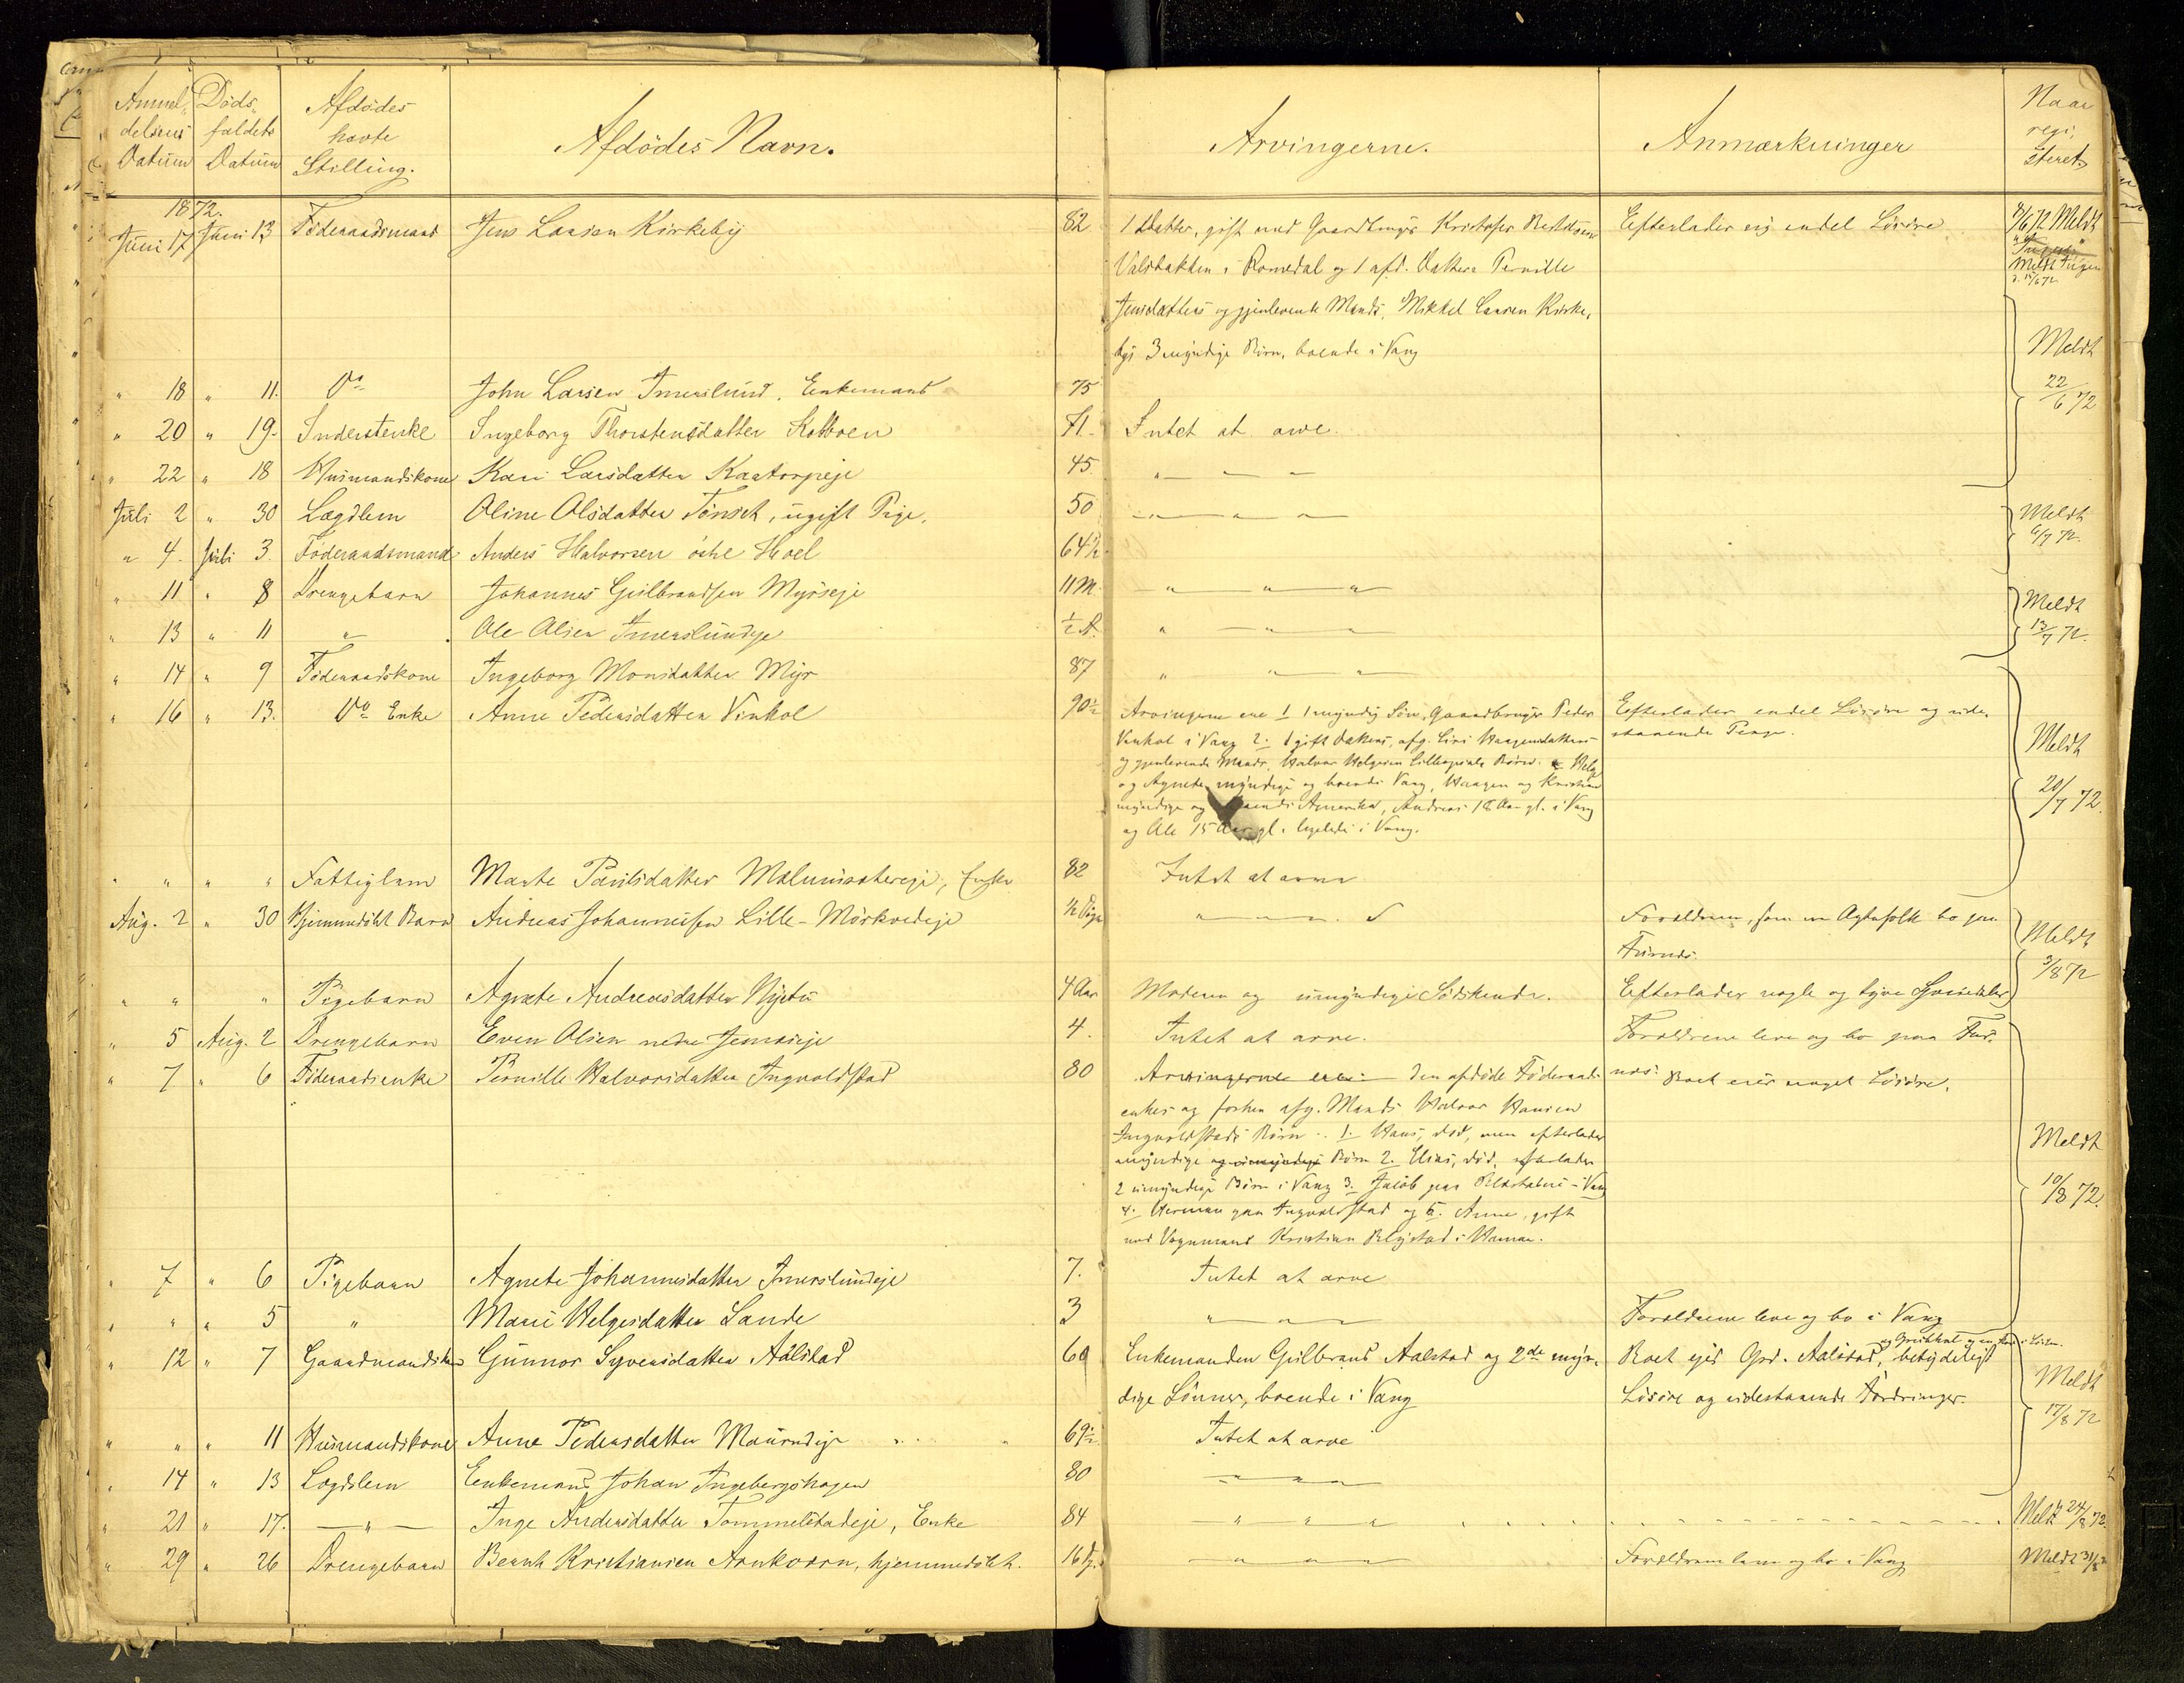 Anmel-
delsens
Datum
Döds-
faldets
Datum
Afdödes
havte
Stilling.
Afdödes Navn.
Arvingerne.
Anmærkninger
Naar
regi-
steret
1872.
Juni 17 Juni 13 Föderaadsmand Jens Larsen Kirkeby 82 1 Datter, gift med Gaardbruger Kristofer Efterlader sig endel Lösöre 8/6 72 Meldt
i Romedal og 1 afd. Datters Pernille Meldt
Jensdatters og gjenlevende Mands, Mikkel Larsen Kirke-
bys 3 myndige Börn, boende i Vang Meldt
" 18 " 11. Do John Larsen Imerslund, Enkemand 75 22/6 72
" 20 " 19. Inderstenke Ingeborg Thorstensdatter Kolboen 71. Intet at arve.
" 22 " 18 Husmandskone Kari Larsdatter Kaatorpeje 45 " — " —
Juli 2 " 30 Lægdlem Oline Olsdatter Tönset, ugift Pige. 50 " " " Meldt
" 4. Juli 3. Föderaadsmand Anders Halvorsen östre Hoel 64½ 6/7 72.
" 11 " 8 Drengebarn Johannes Gulbrandsen Myrseje 11 M. " " " Meldt
" 13 " 11 " Ole Olsen Imerslundeje ½ A. " " " 13/7 72.
" 14 " 9 Föderaadskone Ingeborg Monsdatter Myr 87 " " "
" 16 " 13. Do Enke Anne Pedersdatter Vinkol 90½ Arvingerne ere 1 1 myndig Sön, Gaardbruger Peder Efterlader endel Lösöre og ude-
Vinkol i Vang 2. 1 gift Datters, afg. Siri Haagensdatters staaende Penge. Meldt
og gjenlevende Mands, Halvor Helgesen Börn. Helge
og Agnete myndige og boende Vang, Haagen og Kristian
myndige og boende i Amerika, Andreas 18 Aar gl. i Vang 20/7 72.
og Ole 15 Aar gl. ligeledes i Vang.
" " " " Fattiglem Marte Paulsdatter , Enke 82 Intet at arve
Aug. 2 " 30 Hjemmedöbt Barn Andreas Johannesen Lille-Mörkvedeje ½ " — " — " Forældrene, som er Ægtefolk bo paa Meldt
Furnes.
" " " Pigebarn Agnete Andreasdatter Nystu 4 Aar Moderen og umyndige Södskende. Efterlader nogle og tyve 3/8 72
" 5 Aug. 2 Drengebarn Even Olsen nedre 4. Intet at arve. Forældrene leve og bo paa Fur-
" 7 " 6 Föderaadsenke Pernille Halvorsdatter Ingvoldstad 80 Arvingerne ere: Den afdöde Föderaads- nes. Boet eier noget Lösöre.
enkes og forhen afg. Mands Halvor Hansen
Ingvoldstads Börn: 1. Hans, död, men efterlader Meldt
myndige og umyndige Börn 2. Elias, död, efterlader
2 umyndige Börn i Vang 3. Jakob paa i Vang 10/8 72.
4. Herman paa Ingvoldstad og 5. Anne, gift
med Vognmand Kristian i Hamar.
" 7 " 6 Pigebarn Agnete Johannesdatter Imerslundeje 7. Intet at arve
" " " 5 " Marie Helgesdatter Sande 3 " — " — Forældrene leve og bo i Vang
" 12 " 7 Gaardmandskone Gunnor Syversdatter Aalstad 69 Enkemanden Gulbrand Aalstad og 2de myn- Boet ejer Grd. Aalstad, betydeligt
dige Sönner, boende i Vang Lösöre og udestaaende Fordringer. Meldt
" " " 11 Husmandskone Anne Pedersdatter 69½ Intet at arve 17/8 72
" 14 " 13 Lægdslem Enkemand Johan Ingebergshagen 80 " " "
" 21 " 17. — " — Inge Andersdatter Tommelstadeje, Enke 84 " " " Meldt 24/8 72.
" 29 " 26 Drengebarn Bernt Kristiansen Arnkværn, hjemmedöbt. 16 D. " " " Forældrene leve og bo i Vang Meldt 31/8